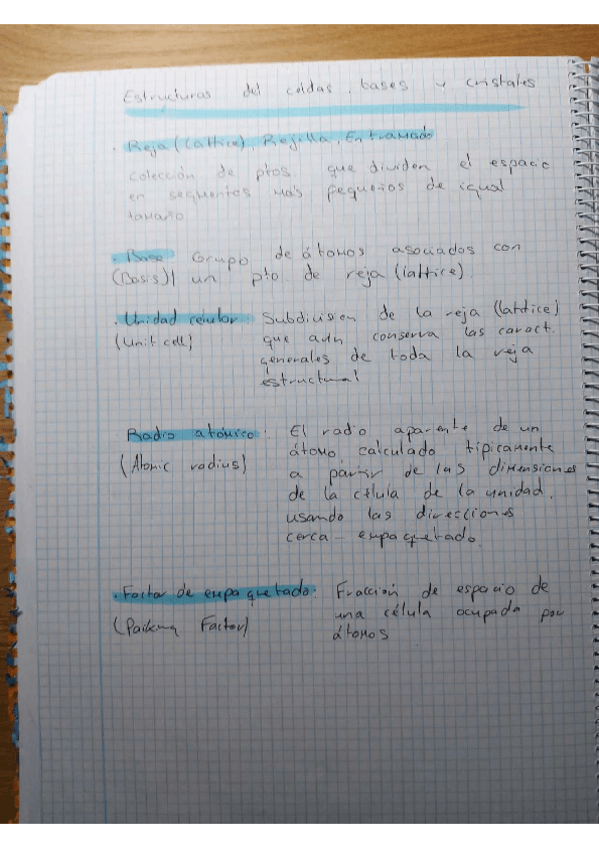 Estructuras del celdas, bases y cristales
· Reja (Lattice), Rejilla, Entramado
colección de ptos que dividen el espacio
en segmentos más pequeños de igual
tamaño
· Base Grupo de átomos asociados con
(Basis) un pto de reja (lattice)
· Unidad celular: Subdivision de la reja (lattice)
(Unit cell) que aún conserva las caract.
generales de toda la reja
estructural
Radio atómico: El radio aparente de un
átomo, calculado típicamente
(Atomic radius) a partir de las dimensiones
de la célula de la unidad,
usando las direcciones
cerca- empaquetado.
· Factor de empaquetado: Fracción de espacio de
(Packing Factor) una célula ocupada por
átomos